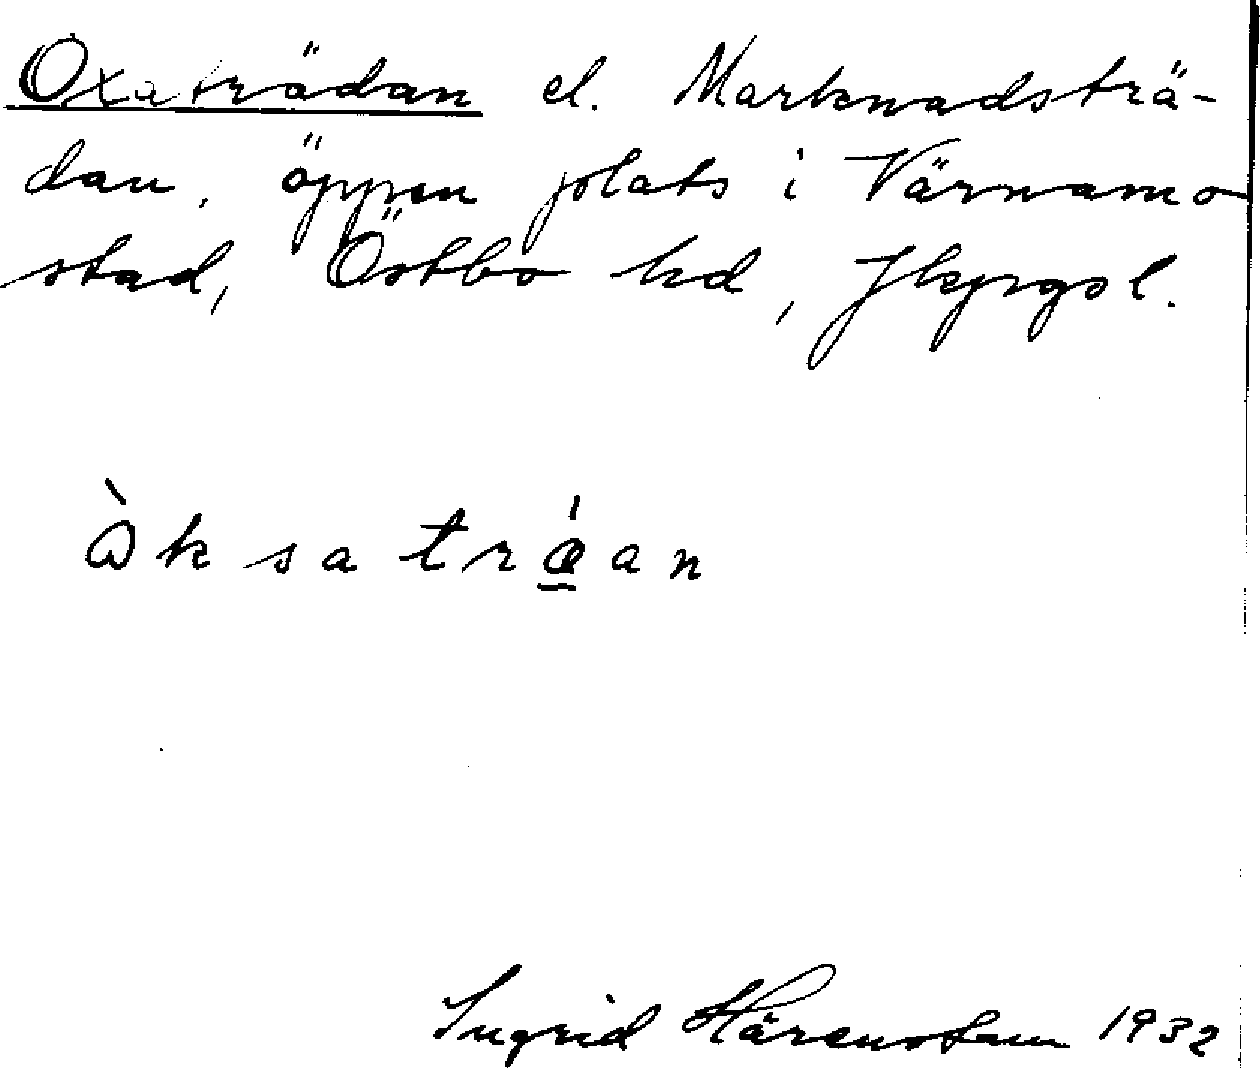 Oxaträdan el. Marknadsträ-
dan, öppen plats i Värnamo
stad, Östbo hd, Jkpgs l.
ὼksatrǽ̲an
Ingrid Härenstam 1932